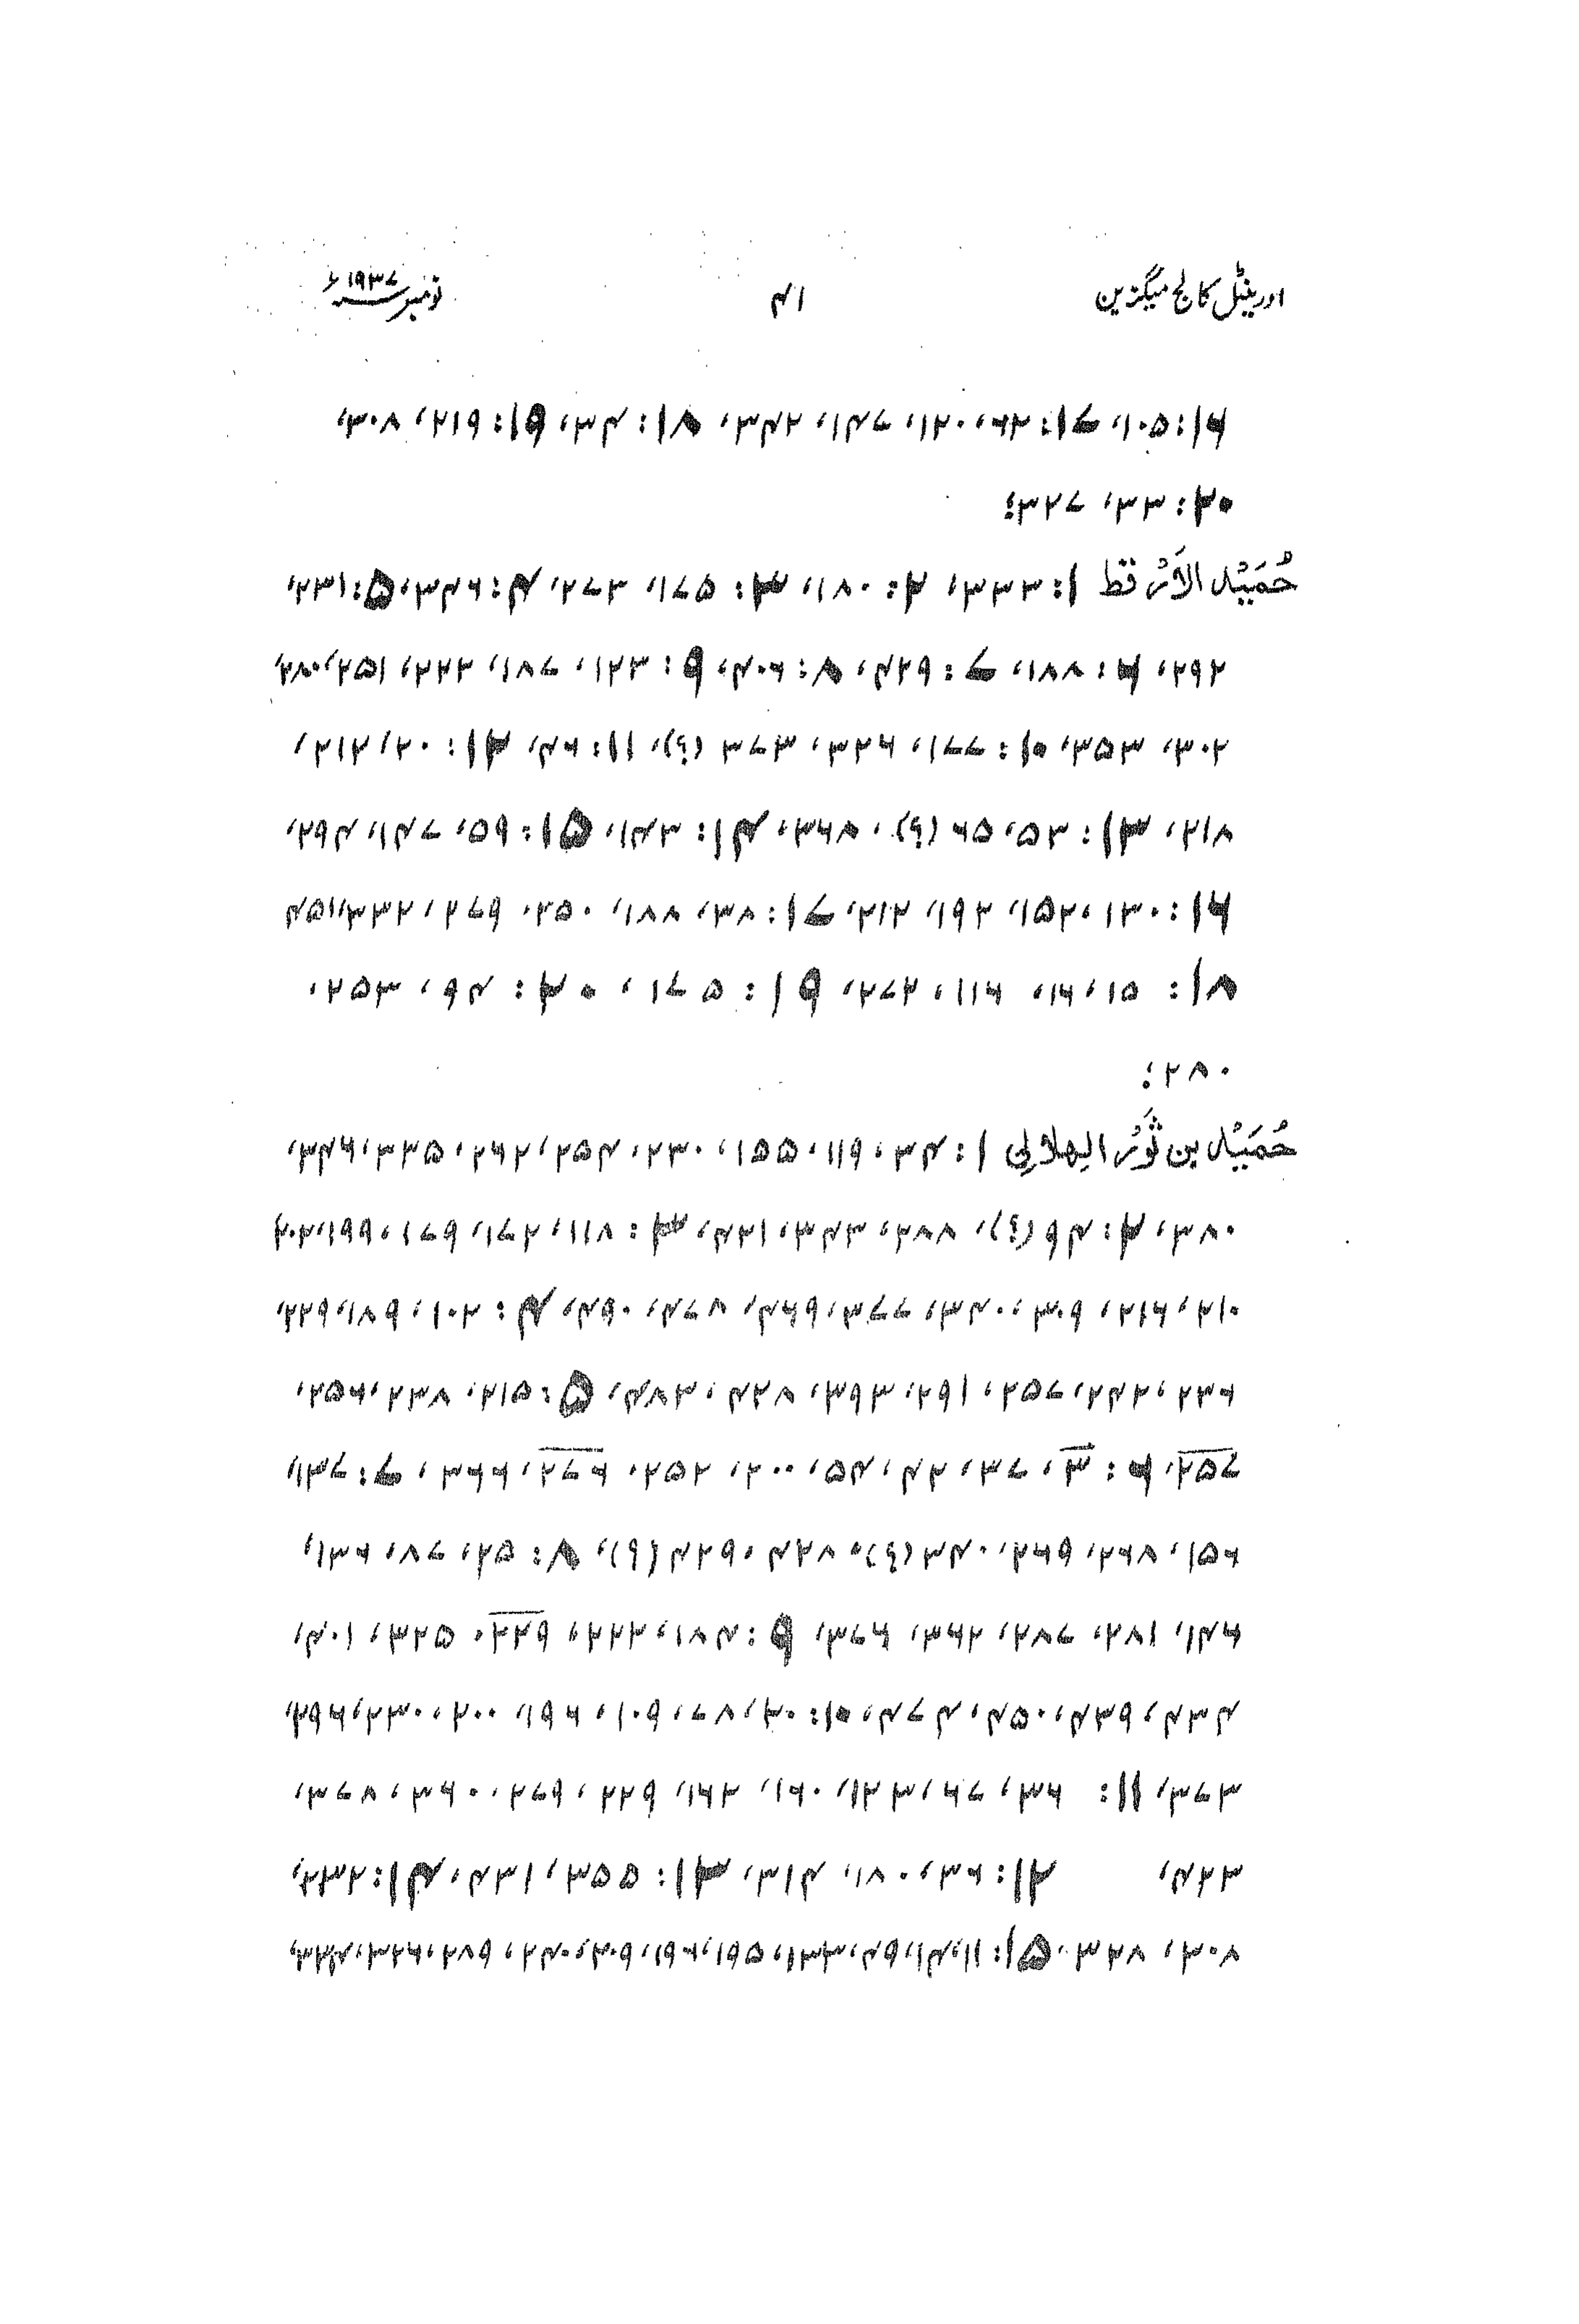 اورینٹل کالج میگزین ۴۱ نومبر ۱۹۳۷ء
۱۶: ۱۰۵، ۱۷: ۶۲، ۱۲۰، ۱۴۷، ۳۴۲، ۱۸: ۳۴، ۱۹: ۲۱۹، ۳۰۸،
۲۰: ۳۳، ۳۲۷؛
حُمَيْد الاَرْقط ۱: ۳۳۳، ۲: ۱۸۰، ۳: ۱۷۵، ۲۷۳، ۴: ۳۴۶، ۵: ۲۳۱،
۲۹۲، ۶: ۱۸۸، ۷: ۴۲۹، ۸: ۴۰۶، ۹: ۱۲۳، ۱۸۷، ۲۲۲، ۲۵۱، ۲۸۰،
۳۰۲، ۳۵۳، ۱۰: ۱۷۷، ۳۲۶، ۳۷۳ (؟)، ۱۱: ۴۶، ۱۲: ۲۰، ۲۱۲،
۲۱۸، ۱۳: ۵۳، ۶۵ (؟)، ۳۶۸، ۱۴: ۱۴۳، ۱۵: ۵۹، ۱۴۷، ۲۹۴،
۱۶: ۱۳۰، ۱۵۲، ۱۹۲، ۲۱۲، ۱۷: ۳۸، ۱۸۸، ۲۵۰، ۲۷۹، ۳۳۲، ۴۵۱
۱۸: ۱۵، ۱۶، ۱۱۶، ۲۷۲، ۱۹: ۱۷۵، ۲۰: ۹۴، ۲۵۳،
۲۸۰؛
حُمَيْد بن ثَوْر الهلالي ۱: ۳۴، ۱۱۹، ۱۵۵، ۲۳۰، ۲۵۴، ۲۶۲، ۳۳۵، ۳۴۶،
۳۸۰، ۲: ۹۴ (؟)، ۲۸۸، ۳۴۳، ۴۲۱، ۳: ۱۱۸، ۱۷۲، ۱۷۹، ۱۹۹، ۲۰۲،
۲۱۰، ۲۱۶، ۳۰۹، ۳۴۰، ۳۷۷، ۴۶۹، ۴۷۸، ۴۹۰، ۴: ۱۰۲، ۱۸۹، ۲۲۹،
۲۳۶، ۲۴۲، ۲۵۷، ۲۹۱، ۳۹۳، ۴۲۸، ۴۸۳، ۵: ۲۱۵، ۲۳۸، ۲۵۶،
۲۵۷، ۶: ۳، ۳۷، ۴۲، ۵۴، ۲۰۰، ۲۵۲، ۲۷۶، ۳۶۶، ۷: ۱۳۷،
۱۵۶، ۲۶۸، ۲۶۹، ۳۴۰ (؟)، ۴۲۸، ۴۲۹ (؟)، ۸: ۲۵، ۸۷، ۱۳۶،
۱۴۶، ۲۸۱، ۲۸۷، ۳۶۲، ۳۷۶، ۹: ۱۸۴، ۲۲۲، ۲۲۹، ۳۲۵، ۴۰۱،
۴۳۴، ۴۳۹، ۴۵۰، ۴۷۴، ۱۰: ۲۰، ۷۸، ۱۰۹، ۱۹۶، ۲۰۰، ۲۳۰، ۲۹۶،
۳۷۳، ۱۱: ۳۶، ۶۷، ۱۲۳، ۱۶۰، ۱۶۲، ۲۲۹، ۲۷۹، ۳۶۰، ۳۷۸،
۴۲۳، ۱۲: ۳۶، ۱۸۰، ۳۱۴، ۱۳: ۳۵۵، ۴۳۱، ۱۴: ۲۳۲،
۳۰۸، ۳۶۸، ۱۵: ۱۱، ۱۴، ۴۹، ۱۳۳، ۱۹۵، ۱۹۶، ۲۰۹، ۲۴۰، ۲۸۹،